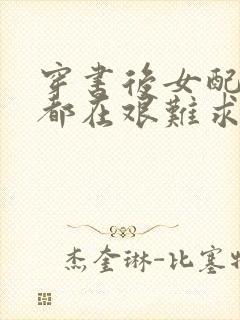 穿書後女配
都在艱難求
杰奎琳-比塞特